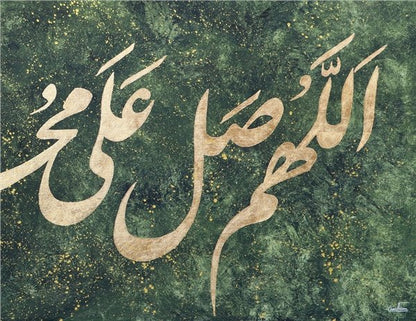 اَللّٰهُمَ صَل عَلَى مُح